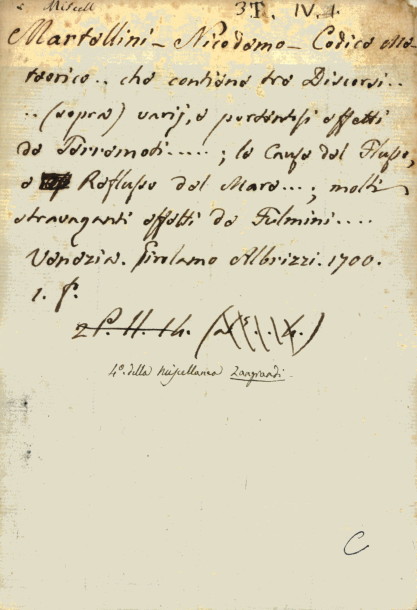 2 Miscell
3T. IV. 1.
Martellini - Nicodemo - Codice me
teorico.. che contiene tre Discorsi..
..(sopra) varij, e portentosi effetti
de Terremoti.....; le Cause del Flusso,
e Reflusso del Mare...; molti
stravaganti effetti de Fulmini....
Venezia. Girolamo Albrizzi. 1700.
1. f.
2 P. II. 14.
4°. della Miscellanea Zangrandi
C